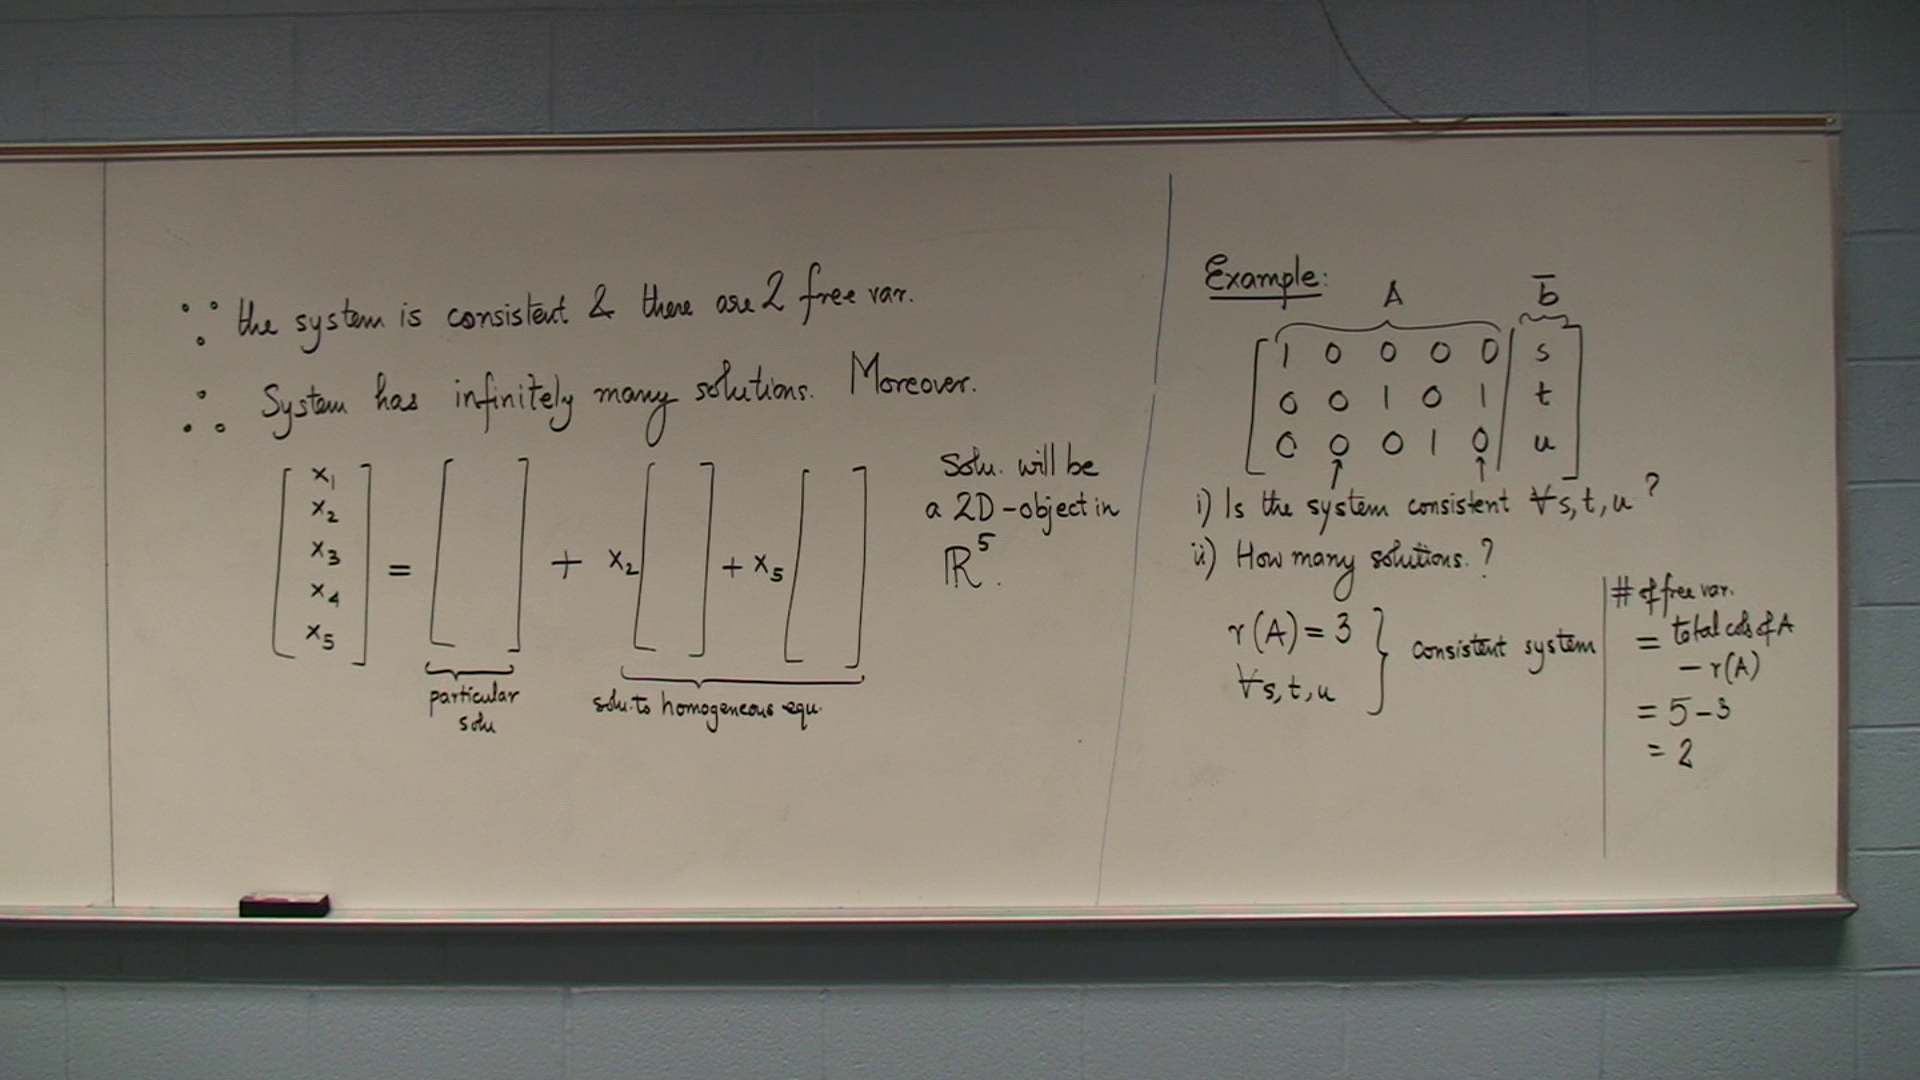 ∵ the system is consistent & there are 2 free var.
∴ System has infinitely many solutions. Moreover.
[x₁ x₂ x₃ x₄ x₅] = [ ] + x₂ [ ] + x₅ [ ]
particular solu
solu. to homogeneous equ.
Solu. will be
a 2D-object in
ℝ⁵.
Example:
A b̅
1 0 0 0 0 | s
0 0 1 0 1 | t
0 0 0 1 0 | u
↑ ↑
i) Is the system consistent ∀ s, t, u ?
ii) How many solutions. ?
r(A) = 3
∀ s, t, u
} consistent system
# of free var.
= total cols of A
- r(A)
= 5 - 3
= 2